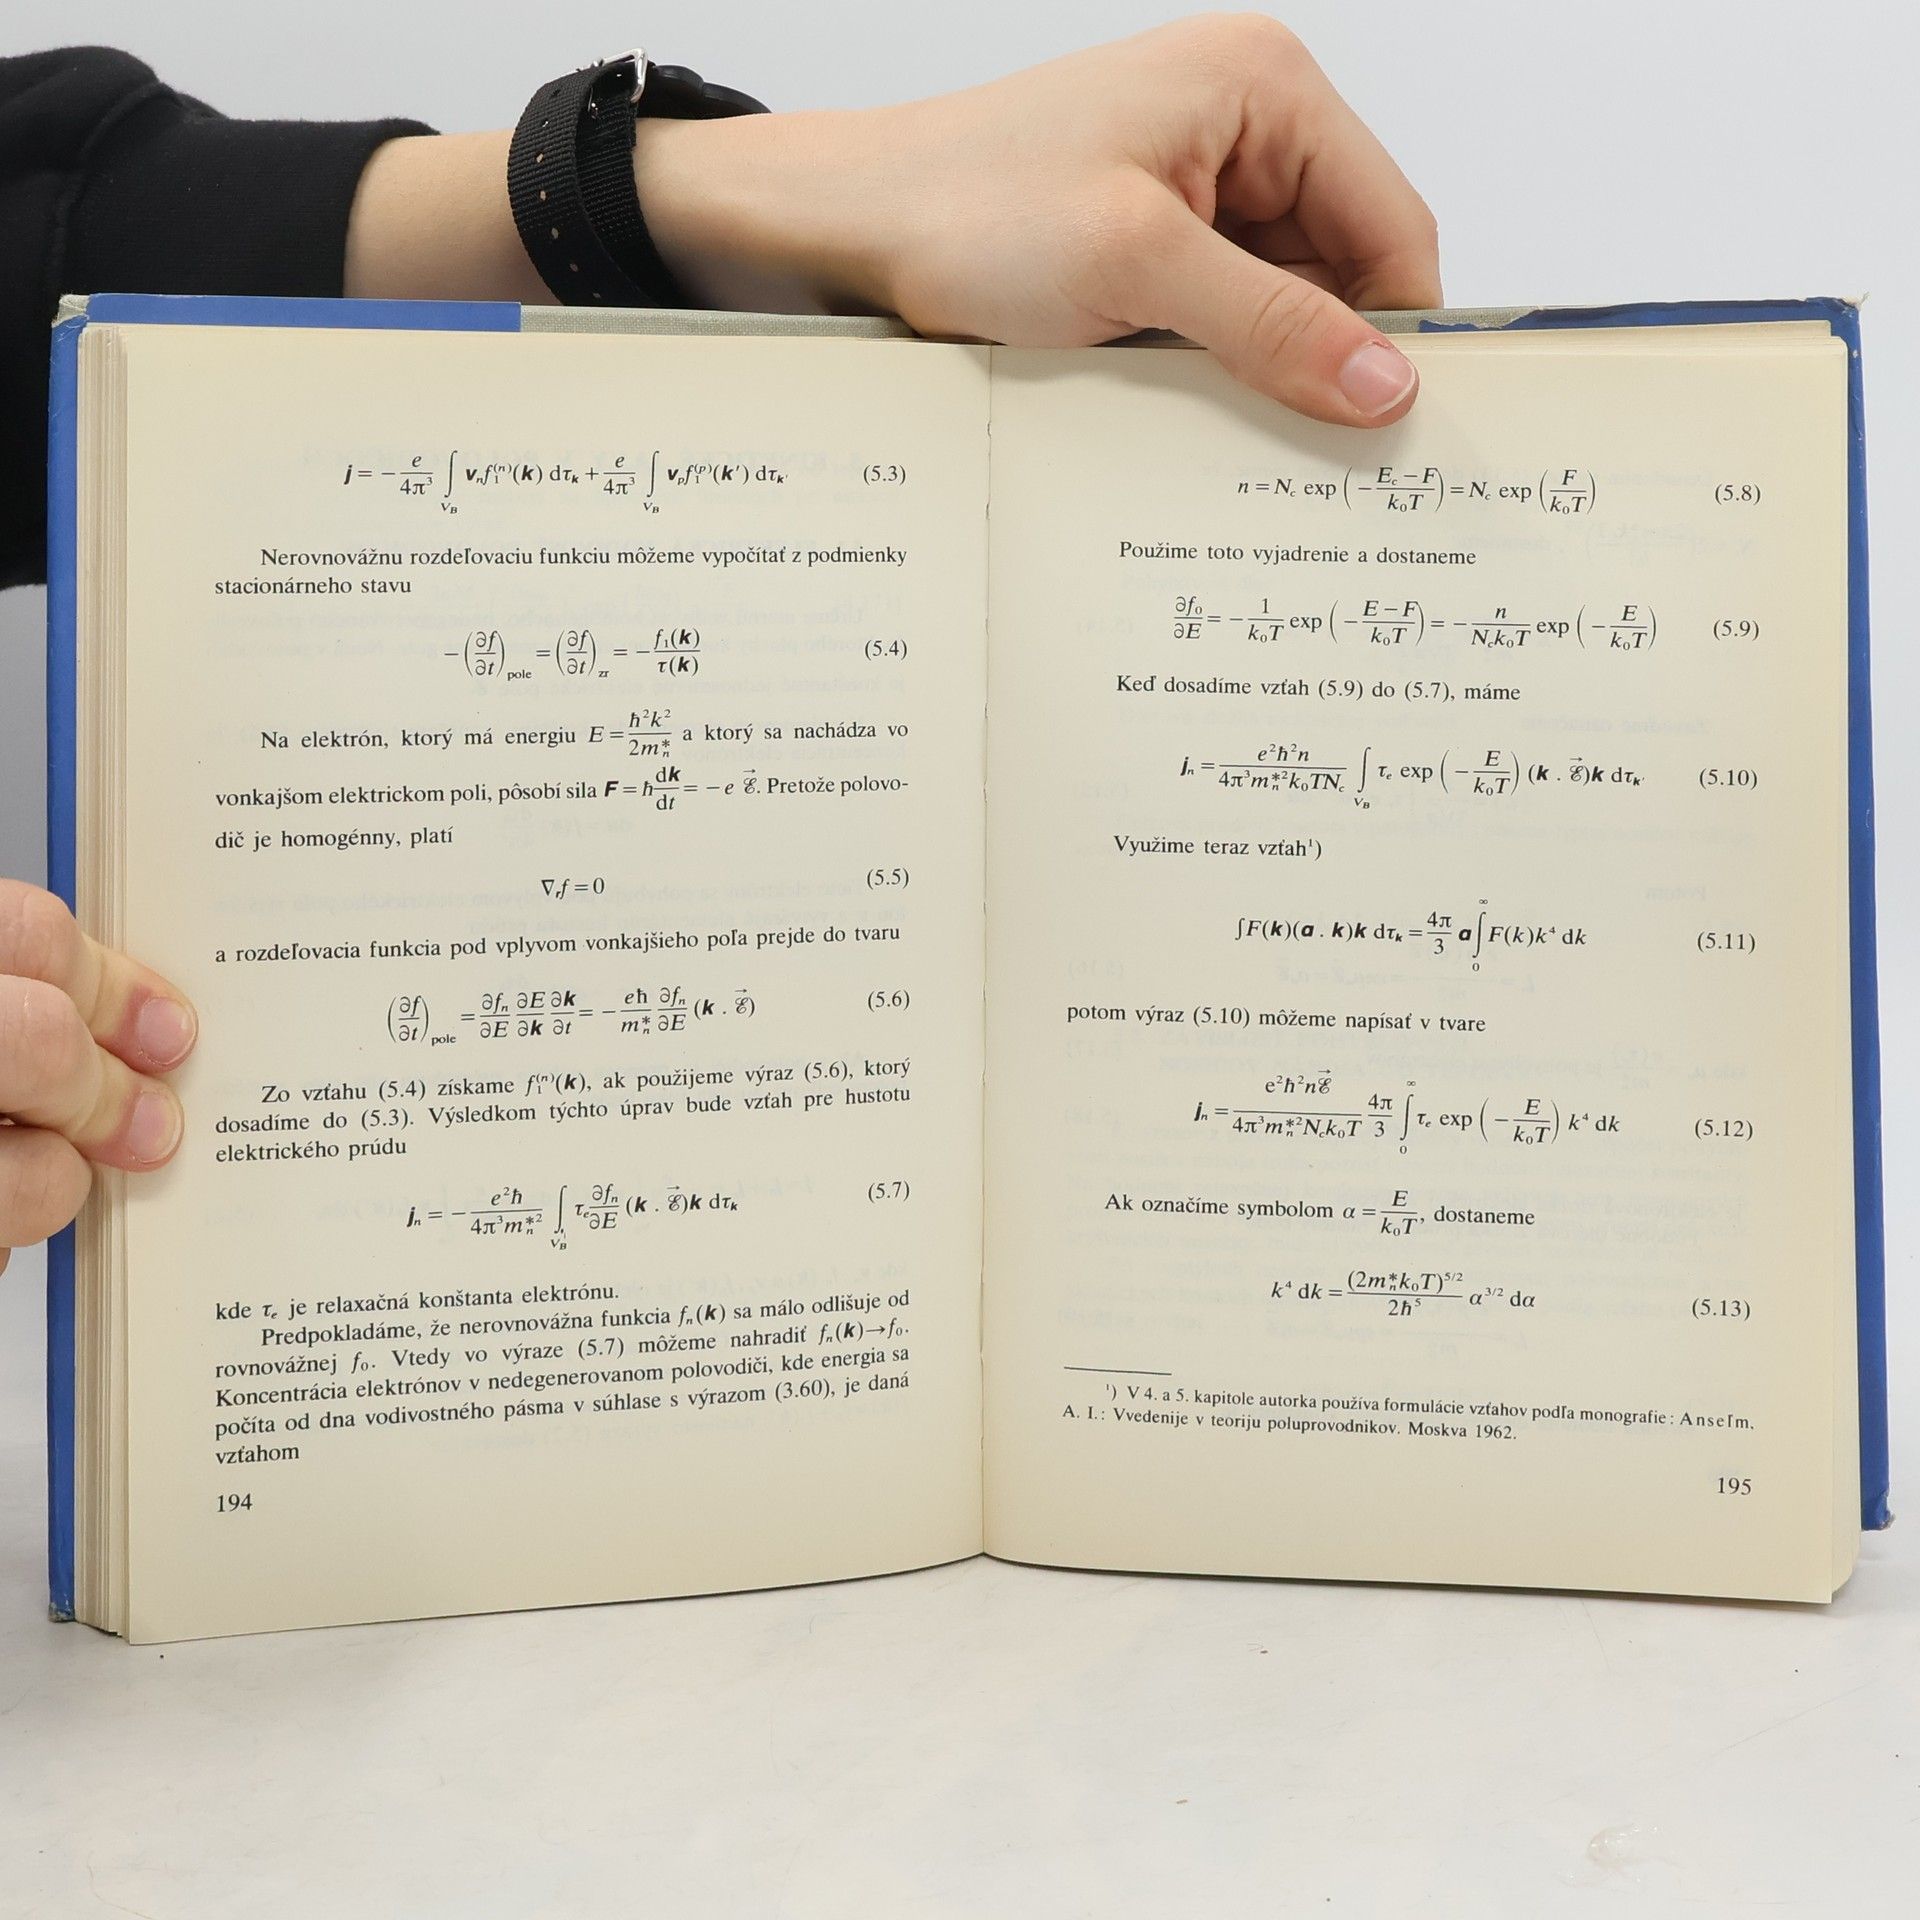 j = − e/4π³ ∫_{V_B} v_n f₁⁽ⁿ⁾(k) dτ_k + e/4π³ ∫_{V_B} v_p f₁⁽ᵖ⁾(k′) dτ_k′ (5.3)
Nerovnovážnu rozdeľovaciu funkciu môžeme vypočítať z podmienky
stacionárneho stavu
−(∂f/∂t)_pole = (∂f/∂t)_zr = − f₁(k)/τ(k) (5.4)
Na elektrón, ktorý má energiu E = ħ²k²/2m*_n a ktorý sa nachádza vo
vonkajšom elektrickom poli, pôsobí sila F = ħ dk/dt = − e ℰ⃗. Pretože polovo-
dič je homogénny, platí
∇_r f = 0 (5.5)
a rozdeľovacia funkcia pod vplyvom vonkajšieho poľa prejde do tvaru
(∂f/∂t)_pole = ∂f_n/∂E ∂E/∂k ∂k/∂t = − eħ/m*_n ∂f_n/∂E (k . ℰ⃗) (5.6)
Zo vzťahu (5.4) získame f₁⁽ⁿ⁾(k), ak použijeme výraz (5.6), ktorý
dosadíme do (5.3). Výsledkom týchto úprav bude vzťah pre hustotu
elektrického prúdu
j_n = − e²ħ/4π³m*_n² ∫_{V_B} τ_e ∂f_n/∂E (k . ℰ⃗)k dτ_k (5.7)
kde τ_e je relaxačná konštanta elektrónu.
Predpokladáme, že nerovnovážna funkcia f_n(k) sa málo odlišuje od
rovnovážnej f₀. Vtedy vo výraze (5.7) môžeme nahradiť f_n(k)→f₀.
Koncentrácia elektrónov v nedegenerovanom polovodiči, kde energia sa
počíta od dna vodivostného pásma v súhlase s výrazom (3.60), je daná
vzťahom
194
n = N_c exp (− E_c − F/k₀T) = N_c exp (F/k₀T) (5.8)
Použime toto vyjadrenie a dostaneme
∂f₀/∂E = − 1/k₀T exp (− E − F/k₀T) = − n/N_c k₀T exp (− E/k₀T) (5.9)
Keď dosadíme vzťah (5.9) do (5.7), máme
j_n = e²ħ²n/4π³m*_n²k₀TN_c ∫_{V_B} τ_e exp (− E/k₀T) (k . ℰ⃗)k dτ_k′ (5.10)
Využime teraz vzťah¹)
∫F(k)(a . k)k dτ_k = 4π/3 a ∫₀^∞ F(k)k⁴ dk (5.11)
potom výraz (5.10) môžeme napísať v tvare
j_n = e²ħ²nℰ⃗/4π³m*_n²N_c k₀T 4π/3 ∫₀^∞ τ_e exp (− E/k₀T) k⁴ dk (5.12)
Ak označíme symbolom α = E/k₀T, dostaneme
k⁴ dk = (2m*_n k₀T)^{5/2}/2ħ⁵ α^{3/2} dα (5.13)
¹) V 4. a 5. kapitole autorka používa formulácie vzťahov podľa monografie: Anseľm,
A. I.: Vvedenije v teoriju poluprovodnikov. Moskva 1962.
195